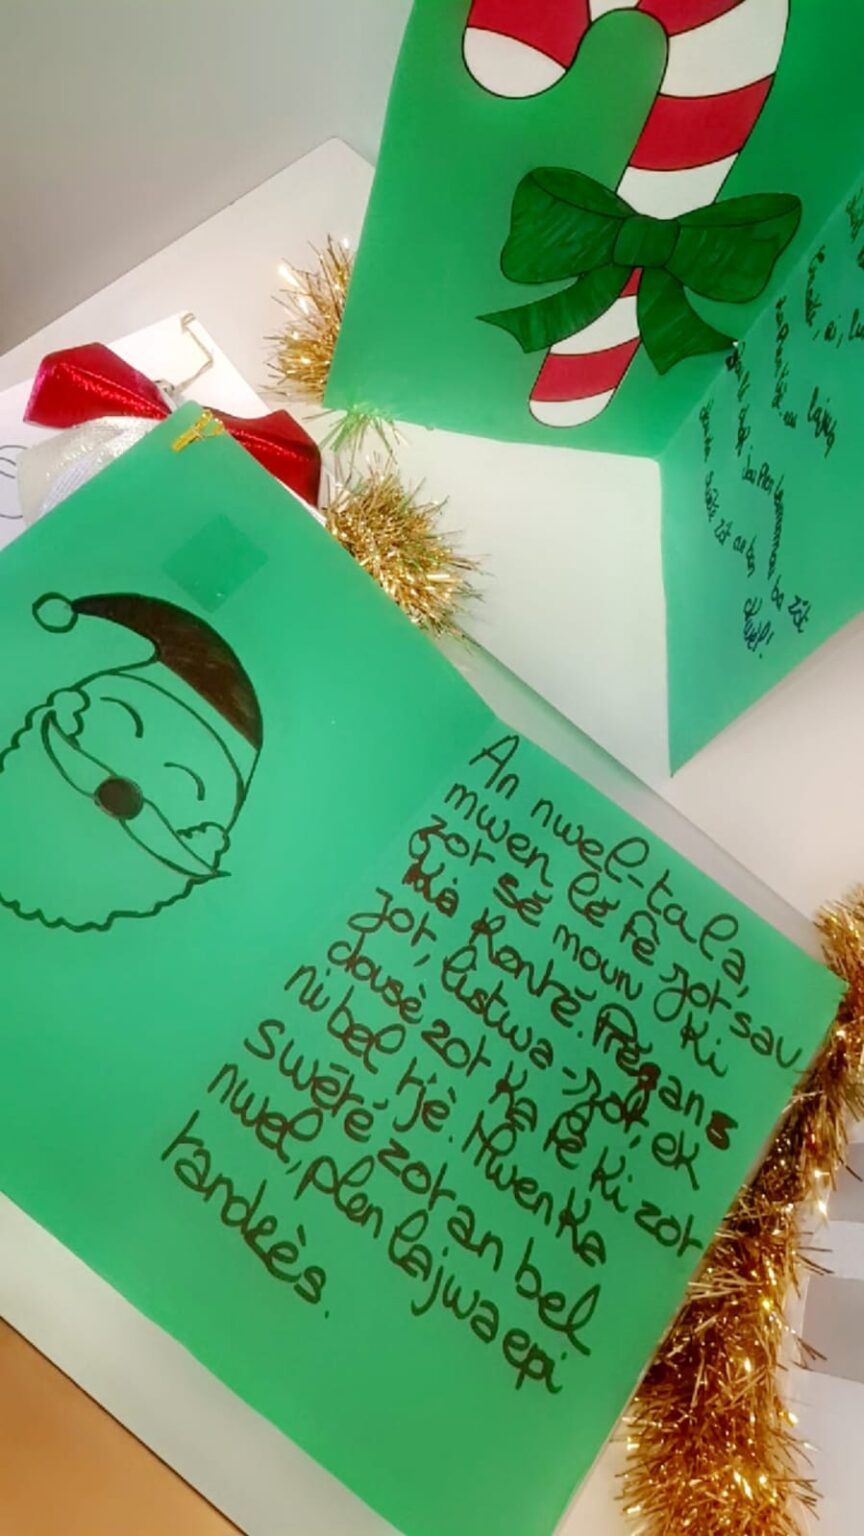 An nwel-tala,
mwen lé fè zot sav
zot sé moun ki
ka Konté. Prézans
zot, listwa-zot, ek
dousè zot ka fè ki zot
ni bel tjè. Mwen ka
swété zot an bel
nwel, plen lajwa epi
tandrès.
lajwa
ba zot
swété zot an bon
Nwèl!